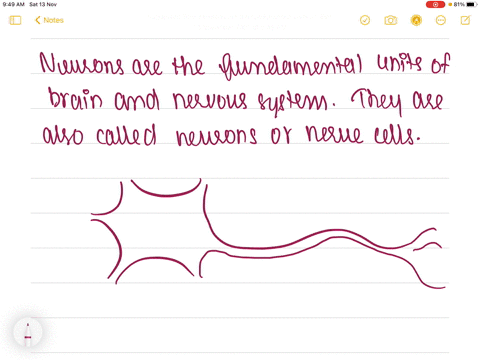 9:49 AM Sat 13 Nov
81%
Notes
Neurons are the fundamental units of
brain and nervous system. They are
also called neurons or nerve cells.